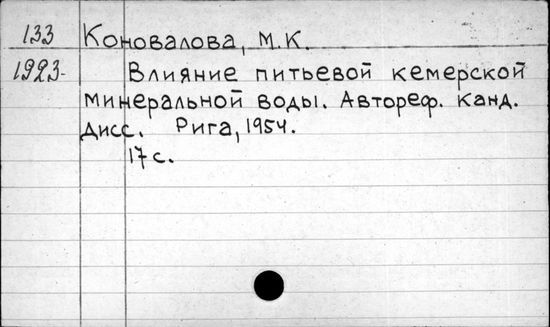 133 Коновалова, М.К.
1923- Влияние питьевой кемерской
минеральной воды. Автореф. канд.
дисс. Рига, 1954.
17 с.